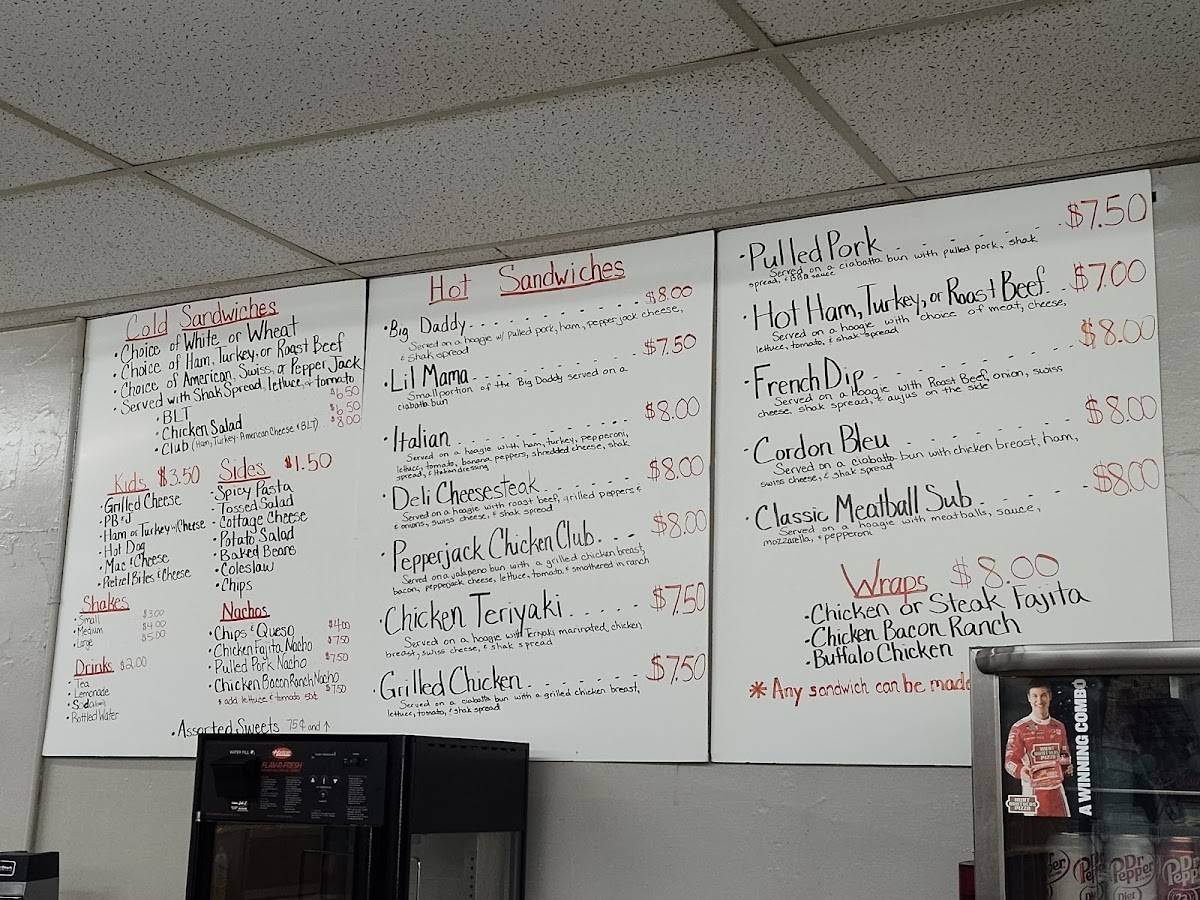 Cold Sandwiches
• Choice of White or Wheat
• Choice of Ham, Turkey, or Roast Beef
• Choice of American, Swiss, or Pepper Jack
• Served with Shak Spread, lettuce, & tomato
• BLT $6.50
• Chicken Salad $6.50
• Club (Ham, Turkey, American Cheese & BLT) $8.00
Kids $3.50
• Grilled Cheese
• PB & J
• Ham or Turkey w/Cheese
• Hot Dog
• Mac & Cheese
• Pretzel Bites & Cheese
Shakes
• Small $3.00
• Medium $4.00
• Large $5.00
Drinks $2.00
• Tea
• Lemonade
• Soda
• Bottled Water
Sides $1.50
• Spicy Pasta
• Tossed Salad
• Cottage Cheese
• Potato Salad
• Baked Beans
• Coleslaw
• Chips
Nachos
• Chips & Queso $4.00
• Chicken Fajita Nacho $7.50
• Pulled Pork Nacho $7.50
• Chicken Bacon Ranch Nacho $7.50
* add lettuce & tomato 50¢
• Assorted Sweets 75¢ and ↑
Hot Sandwiches
• Big Daddy $8.00
Served on a hoagie w/ pulled pork, ham, pepperjack cheese,
& shak spread
• Lil Mama $7.50
Small portion of the Big Daddy served on a
ciabatta bun
• Italian $8.00
Served on a hoagie with ham, turkey, pepperoni,
lettuce, tomato, banana peppers, shredded cheese, shak
spread, & Italian dressing
• Deli Cheesesteak $8.00
Served on a hoagie with roast beef, grilled peppers &
onions, swiss cheese, & shak spread
• Pepperjack Chicken Club $8.00
Served on a jalapeno bun with a grilled chicken breast,
bacon, pepperjack cheese, lettuce, tomato, & smothered in ranch
• Chicken Teriyaki $7.50
Served on a hoagie with Teriyaki marinated, chicken
breast, swiss cheese, & shak spread
• Grilled Chicken $7.50
Served on a ciabatta bun with a grilled chicken breast,
lettuce, tomato, & shak spread
• Pulled Pork $7.50
Served on a ciabatta bun with pulled pork, shak
spread, & BBQ sauce
• Hot Ham, Turkey, or Roast Beef $7.00
Served on a hoagie with choice of meat, cheese,
lettuce, tomato, & shak spread
• French Dip $8.00
Served on a hoagie with Roast Beef, onion, swiss
cheese, shak spread, & aujus on the side
• Cordon Bleu $8.00
Served on a ciabatta bun with chicken breast, ham,
swiss cheese, & shak spread
• Classic Meatball Sub $8.00
Served on a hoagie with meatballs, sauce,
mozzarella, & pepperoni
Wraps $8.00
• Chicken or Steak Fajita
• Chicken Bacon Ranch
• Buffalo Chicken
* Any sandwich can be made
WATER FILL
FLAV-R-FRESH
A WINNING COMBO
HUNT BROTHERS PIZZA
Dr Pepper
Diet